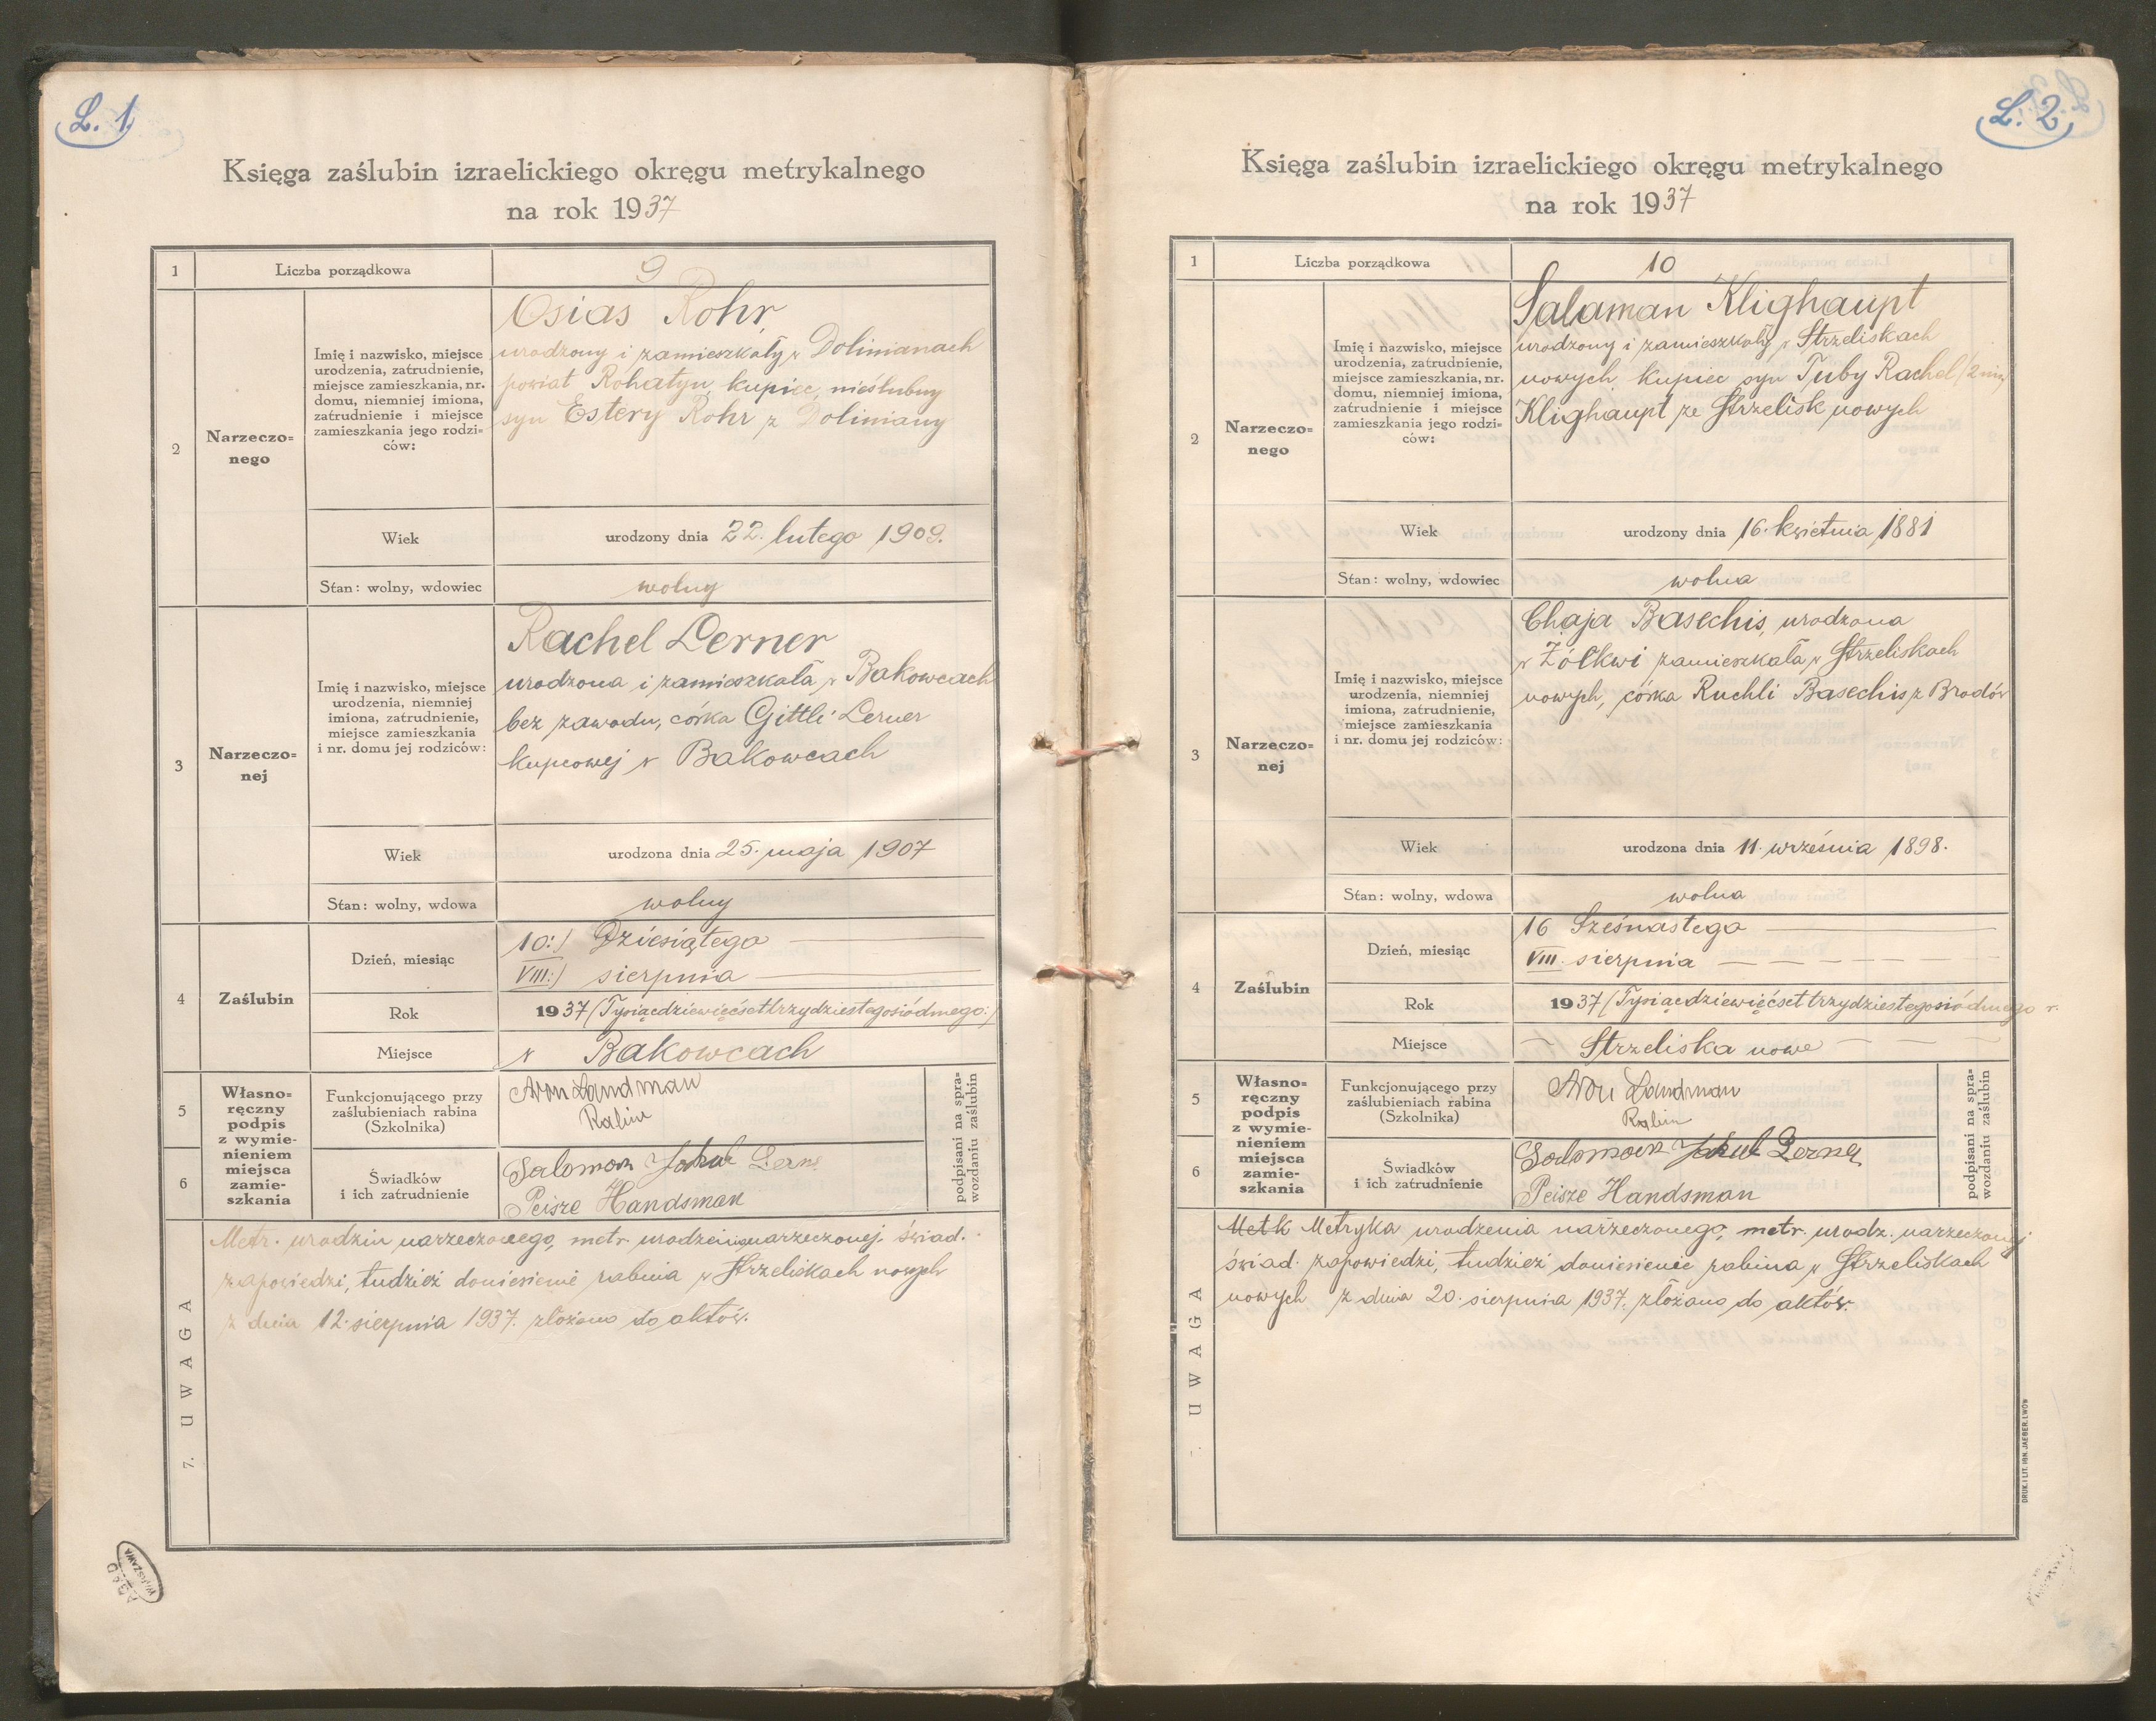 L. 1.
Księga zaślubin izraelickiego okręgu metrykalnego
na rok 1937
1
Liczba porządkowa
9
2
Narzeczo=
nego
Imię i nazwisko, miejsce
urodzenia, zatrudnienie,
miejsce zamieszkania, nr.
domu, niemniej imiona,
zatrudnienie i miejsce
zamieszkania jego rodzi=
ców:
Osias Rohr,
urodzony i zamieszkały w Dolinianach
powiat Rohatyn kupiec, nieślubny
syn Estery Rohr z Doliniany
Wiek
urodzony dnia 22. lutego 1909.
Stan: wolny, wdowiec
wolny
3
Narzeczo=
nej
Imię i nazwisko, miejsce
urodzenia, niemniej
imiona, zatrudnienie,
miejsce zamieszkania
i nr. domu jej rodziców:
Rachel Lerner
urodzona i zamieszkała w Bakowcach
bez zawodu, córka Gittli Lerner
kupcowej w Bakowcach
Wiek
urodzona dnia 25. maja 1907
Stan: wolny, wdowa
wolny
4
Zaślubin
Dzień, miesiąc
10:) Dziesiątego
VIII:) sierpnia
Rok
1937 (Tysiącdziewięćsettrzydziestegosiódmego:)
Miejsce
w Bakowcach
5
Własno=
ręczny
podpis
z wymie-
nieniem
miejsca
zamie-
szkania
Funkcjonującego przy
zaślubieniach rabina
(Szkolnika)
Aron Landman
Rabin
podpisani na spra-
wozdaniu zaślubin
6
Świadków
i ich zatrudnienie
Salomon Jakub
Peisze Handsman
7. UWAGA
Metr. urodzin narzeczonego, metr. urodzenia narzeczonej, świad.
zapowiedzi, tudzież doniesienie rabina w Strzeliskach nowych
z dnia 12. sierpnia 1937. złożono do aktów.
WARSZAWA
L. 2
Księga zaślubin izraelickiego okręgu metrykalnego
na rok 1937
1
Liczba porządkowa
10
2
Narzeczo=
nego
Imię i nazwisko, miejsce
urodzenia, zatrudnienie,
miejsce zamieszkania, nr.
domu, niemniej imiona,
zatrudnienie i miejsce
zamieszkania jego rodzi=
ców:
Salaman Klighaupt
urodzony i zamieszkały w Strzeliskach
nowych, kupiec syn Tuby Rachel
Klighaupt ze Strzelisk nowych
Wiek
urodzony dnia 16. kwietnia 1881
Stan: wolny, wdowiec
wolna
3
Narzeczo=
nej
Imię i nazwisko, miejsce
urodzenia, niemniej
imiona, zatrudnienie,
miejsce zamieszkania
i nr. domu jej rodziców:
Chaja Basechis, urodzona
w Żółkwi zamieszkała w Strzeliskach
nowych, córka Ruchli Basechis z Brodów
Wiek
urodzona dnia 11. września 1898.
Stan: wolny, wdowa
wolna
4
Zaślubin
Dzień, miesiąc
16 Szesnastego
VIII. sierpnia
Rok
1937 (Tysiącdziewięćsettrzydziestegosiódmego r.
Miejsce
Strzeliska nowe
5
Własno=
ręczny
podpis
z wymie-
nieniem
miejsca
zamie-
szkania
Funkcjonującego przy
zaślubieniach rabina
(Szkolnika)
Aron Landman
Rabin
podpisani na spra-
wozdaniu zaślubin
6
Świadków
i ich zatrudnienie
Salomon Jakub
Peisze Handsman
UWAGA
Metk Metryka urodzenia narzeczonego, metr. urodz. narzeczonej
świad. zapowiedzi, tudzież doniesienie rabina w Strzeliskach
nowych z dnia 20. sierpnia 1937. złożono do aktów.
DRUK. I LIT. IGN. JAEGER. LWÓW